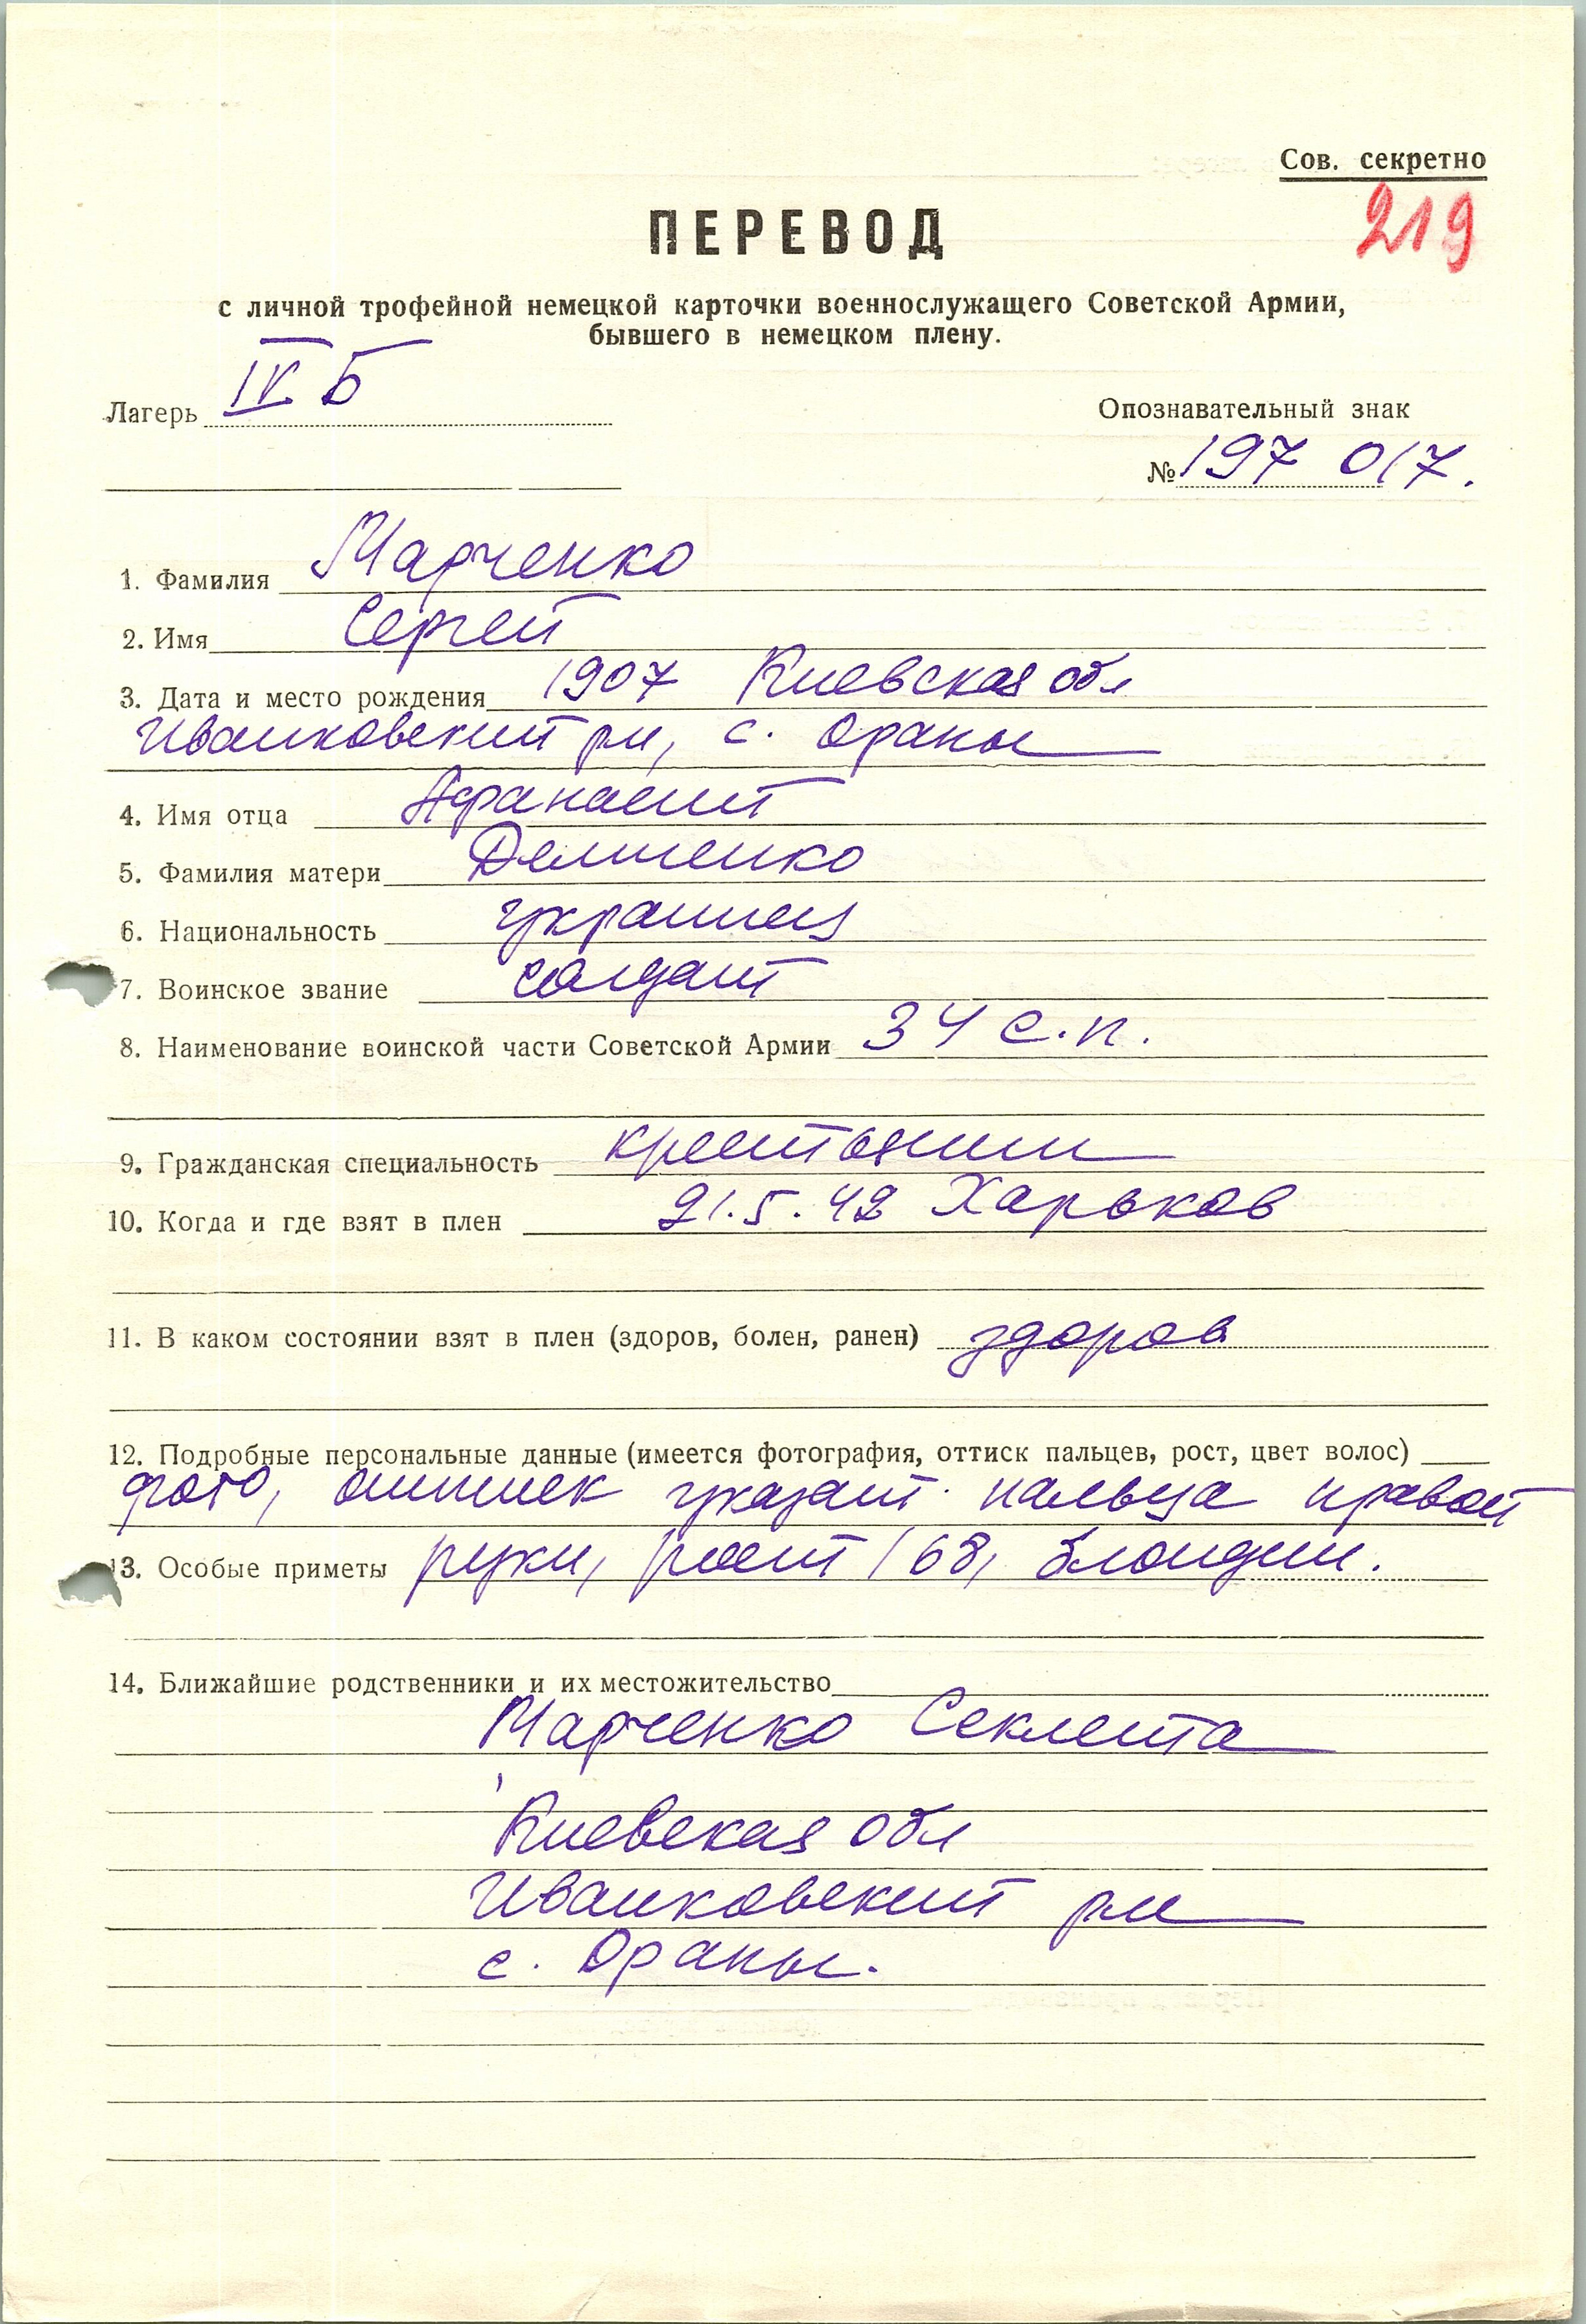 Сов. секретно
219
ПЕРЕВОД
с личной трофейной немецкой карточки военнослужащего Советской Армии,
бывшего в немецком плену.
Лагерь IV Б
Опознавательный знак
№ 197 017.
1. Фамилия Марченко
2. Имя Сергей
3. Дата и место рождения 1907 Киевская обл
Иванковский рн, с. Ораны
4. Имя отца Афанасий
5. Фамилия матери
6. Национальность украинец
7. Воинское звание солдат
8. Наименование воинской части Советской Армии 34 с.п.
9. Гражданская специальность крестьянин
10. Когда и где взят в плен 21.5.42 Харьков
11. В каком состоянии взят в плен (здоров, болен, ранен) здоров
12. Подробные персональные данные (имеется фотография, оттиск пальцев, рост, цвет волос)
фото, оттиск указат. пальца правой
13. Особые приметы руки, рост 168, блондин.
14. Ближайшие родственники и их местожительство
Марченко Секлета
Киевская обл
Иванковский рн
с. Ораны.